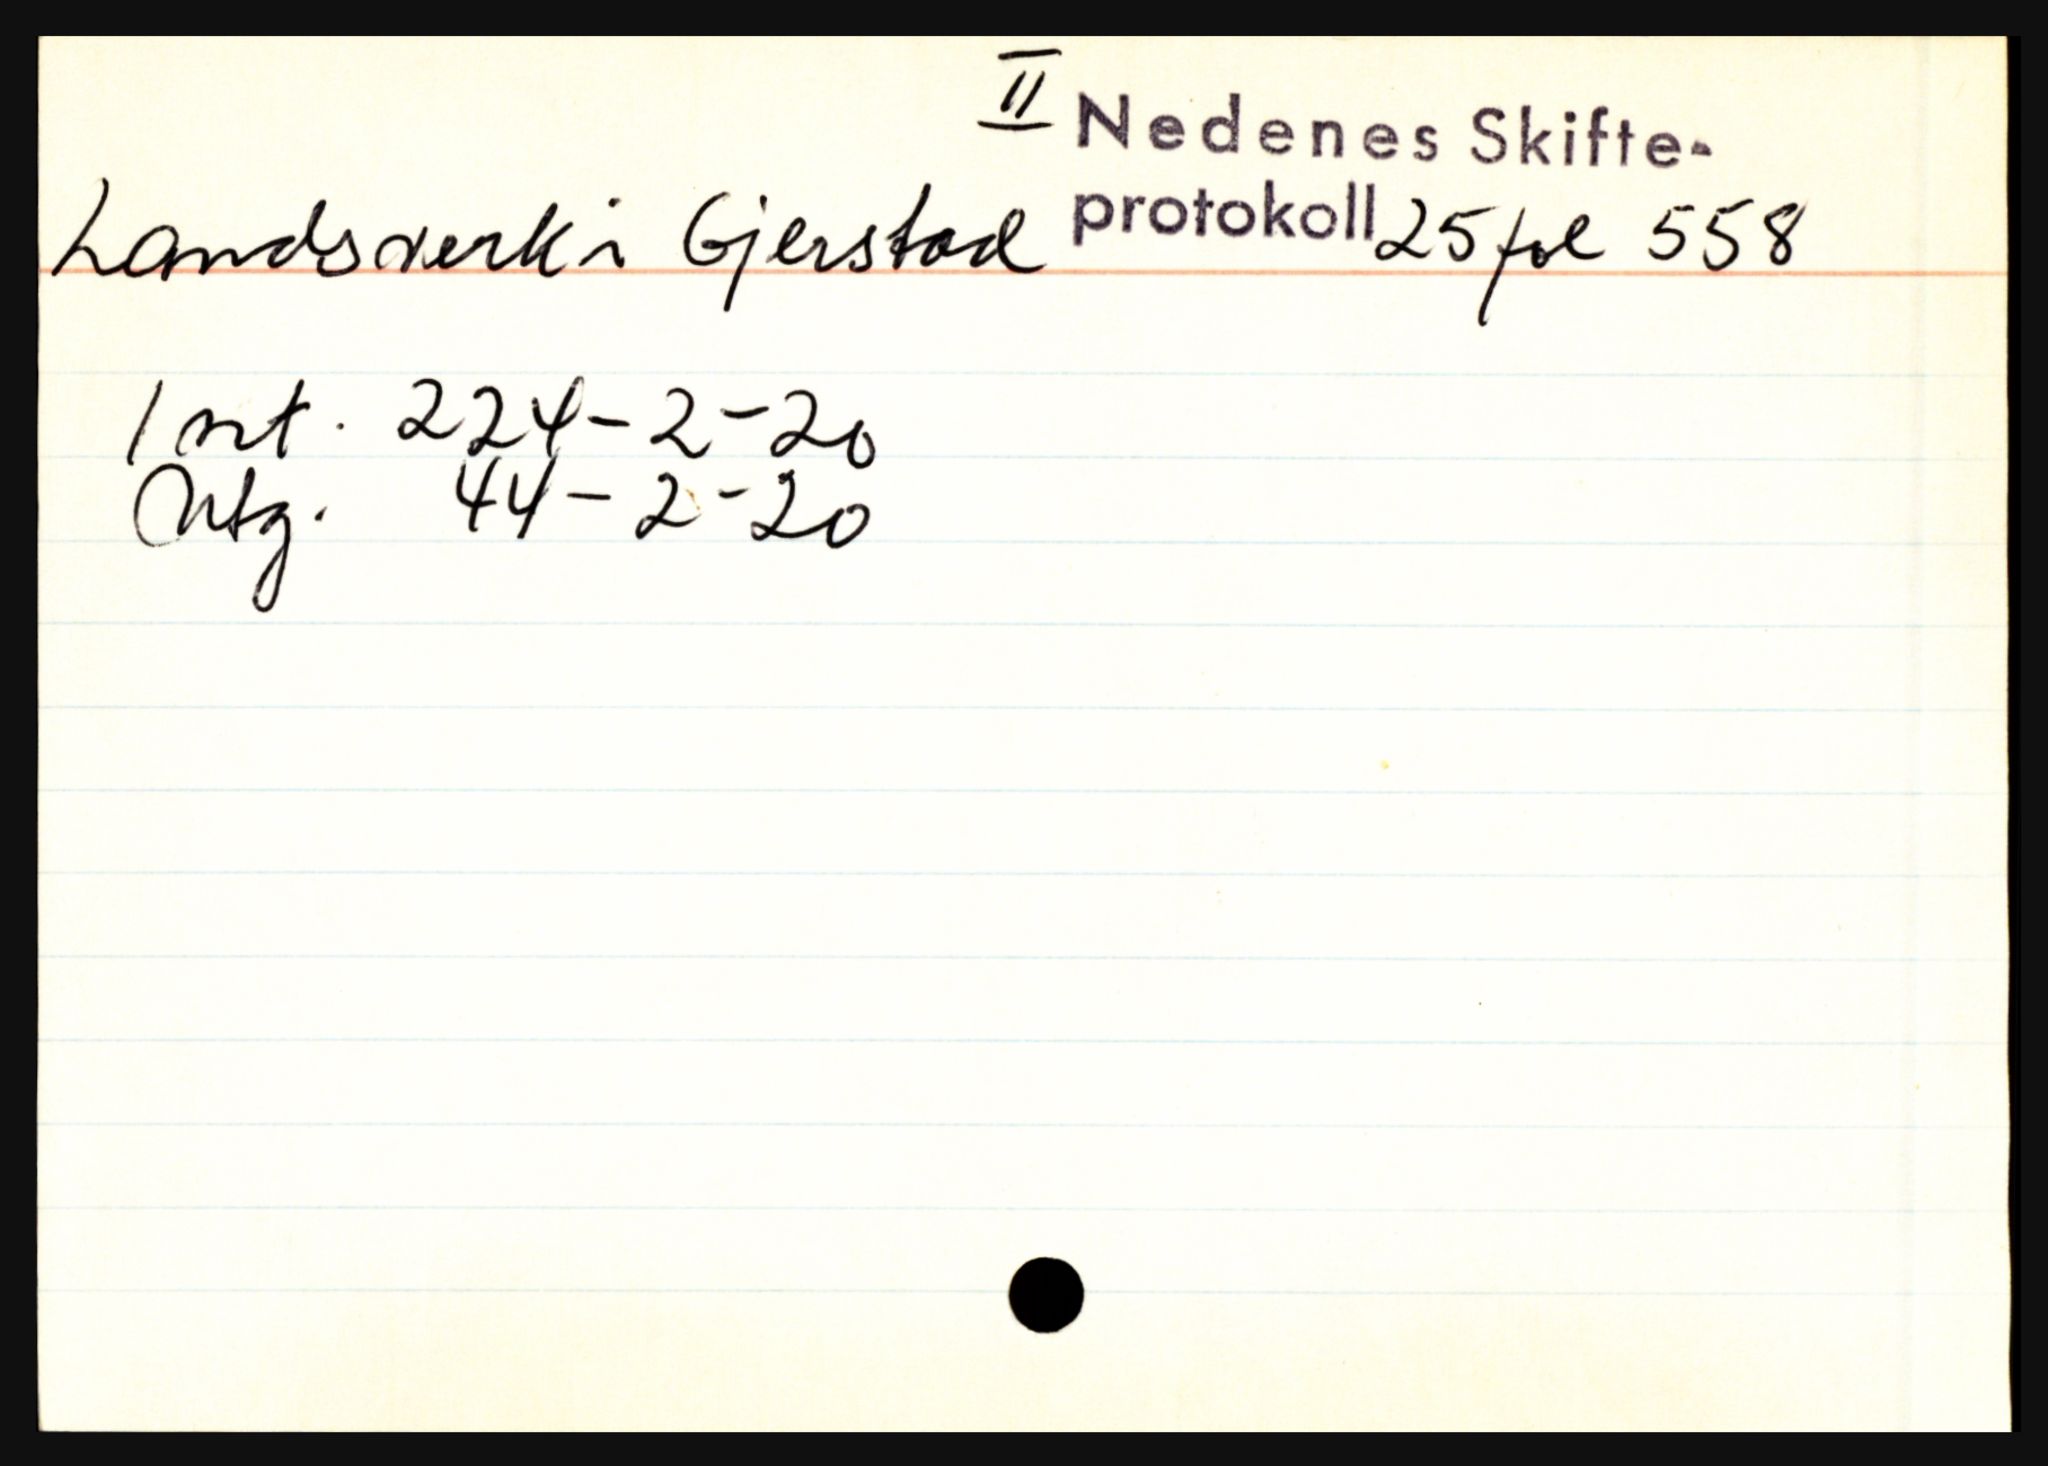 II Nedenes Skifte-
Landsverk i Gjerstad protokoll 25 fol 558
Int. 224-2-20
Utg. 44-2-20